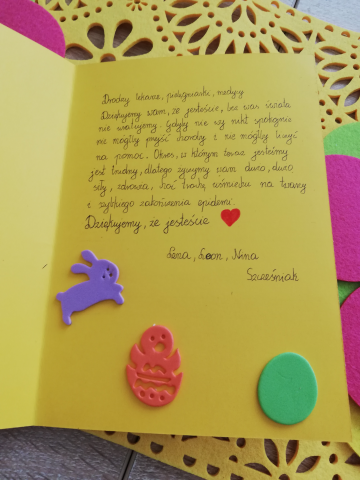 Drodzy lekarze, pielęgniarki, medycy
Dziękujemy wam, że jesteście, bez was świata
nie uratujemy. Gdyby nie wy nikt spokojnie
nie mógłby przejść choroby i nie mógłby liczyć
na pomoc. Okres, w którym teraz jesteśmy
jest trudny, dlatego życzymy wam dużo, dużo
siły, zdrowia, choć trochę uśmiechu na twarzy
i szybkiego zakończenia epidemi.
Dziękujemy, że jesteście
Lena, Leon, Nina
Szcześniak